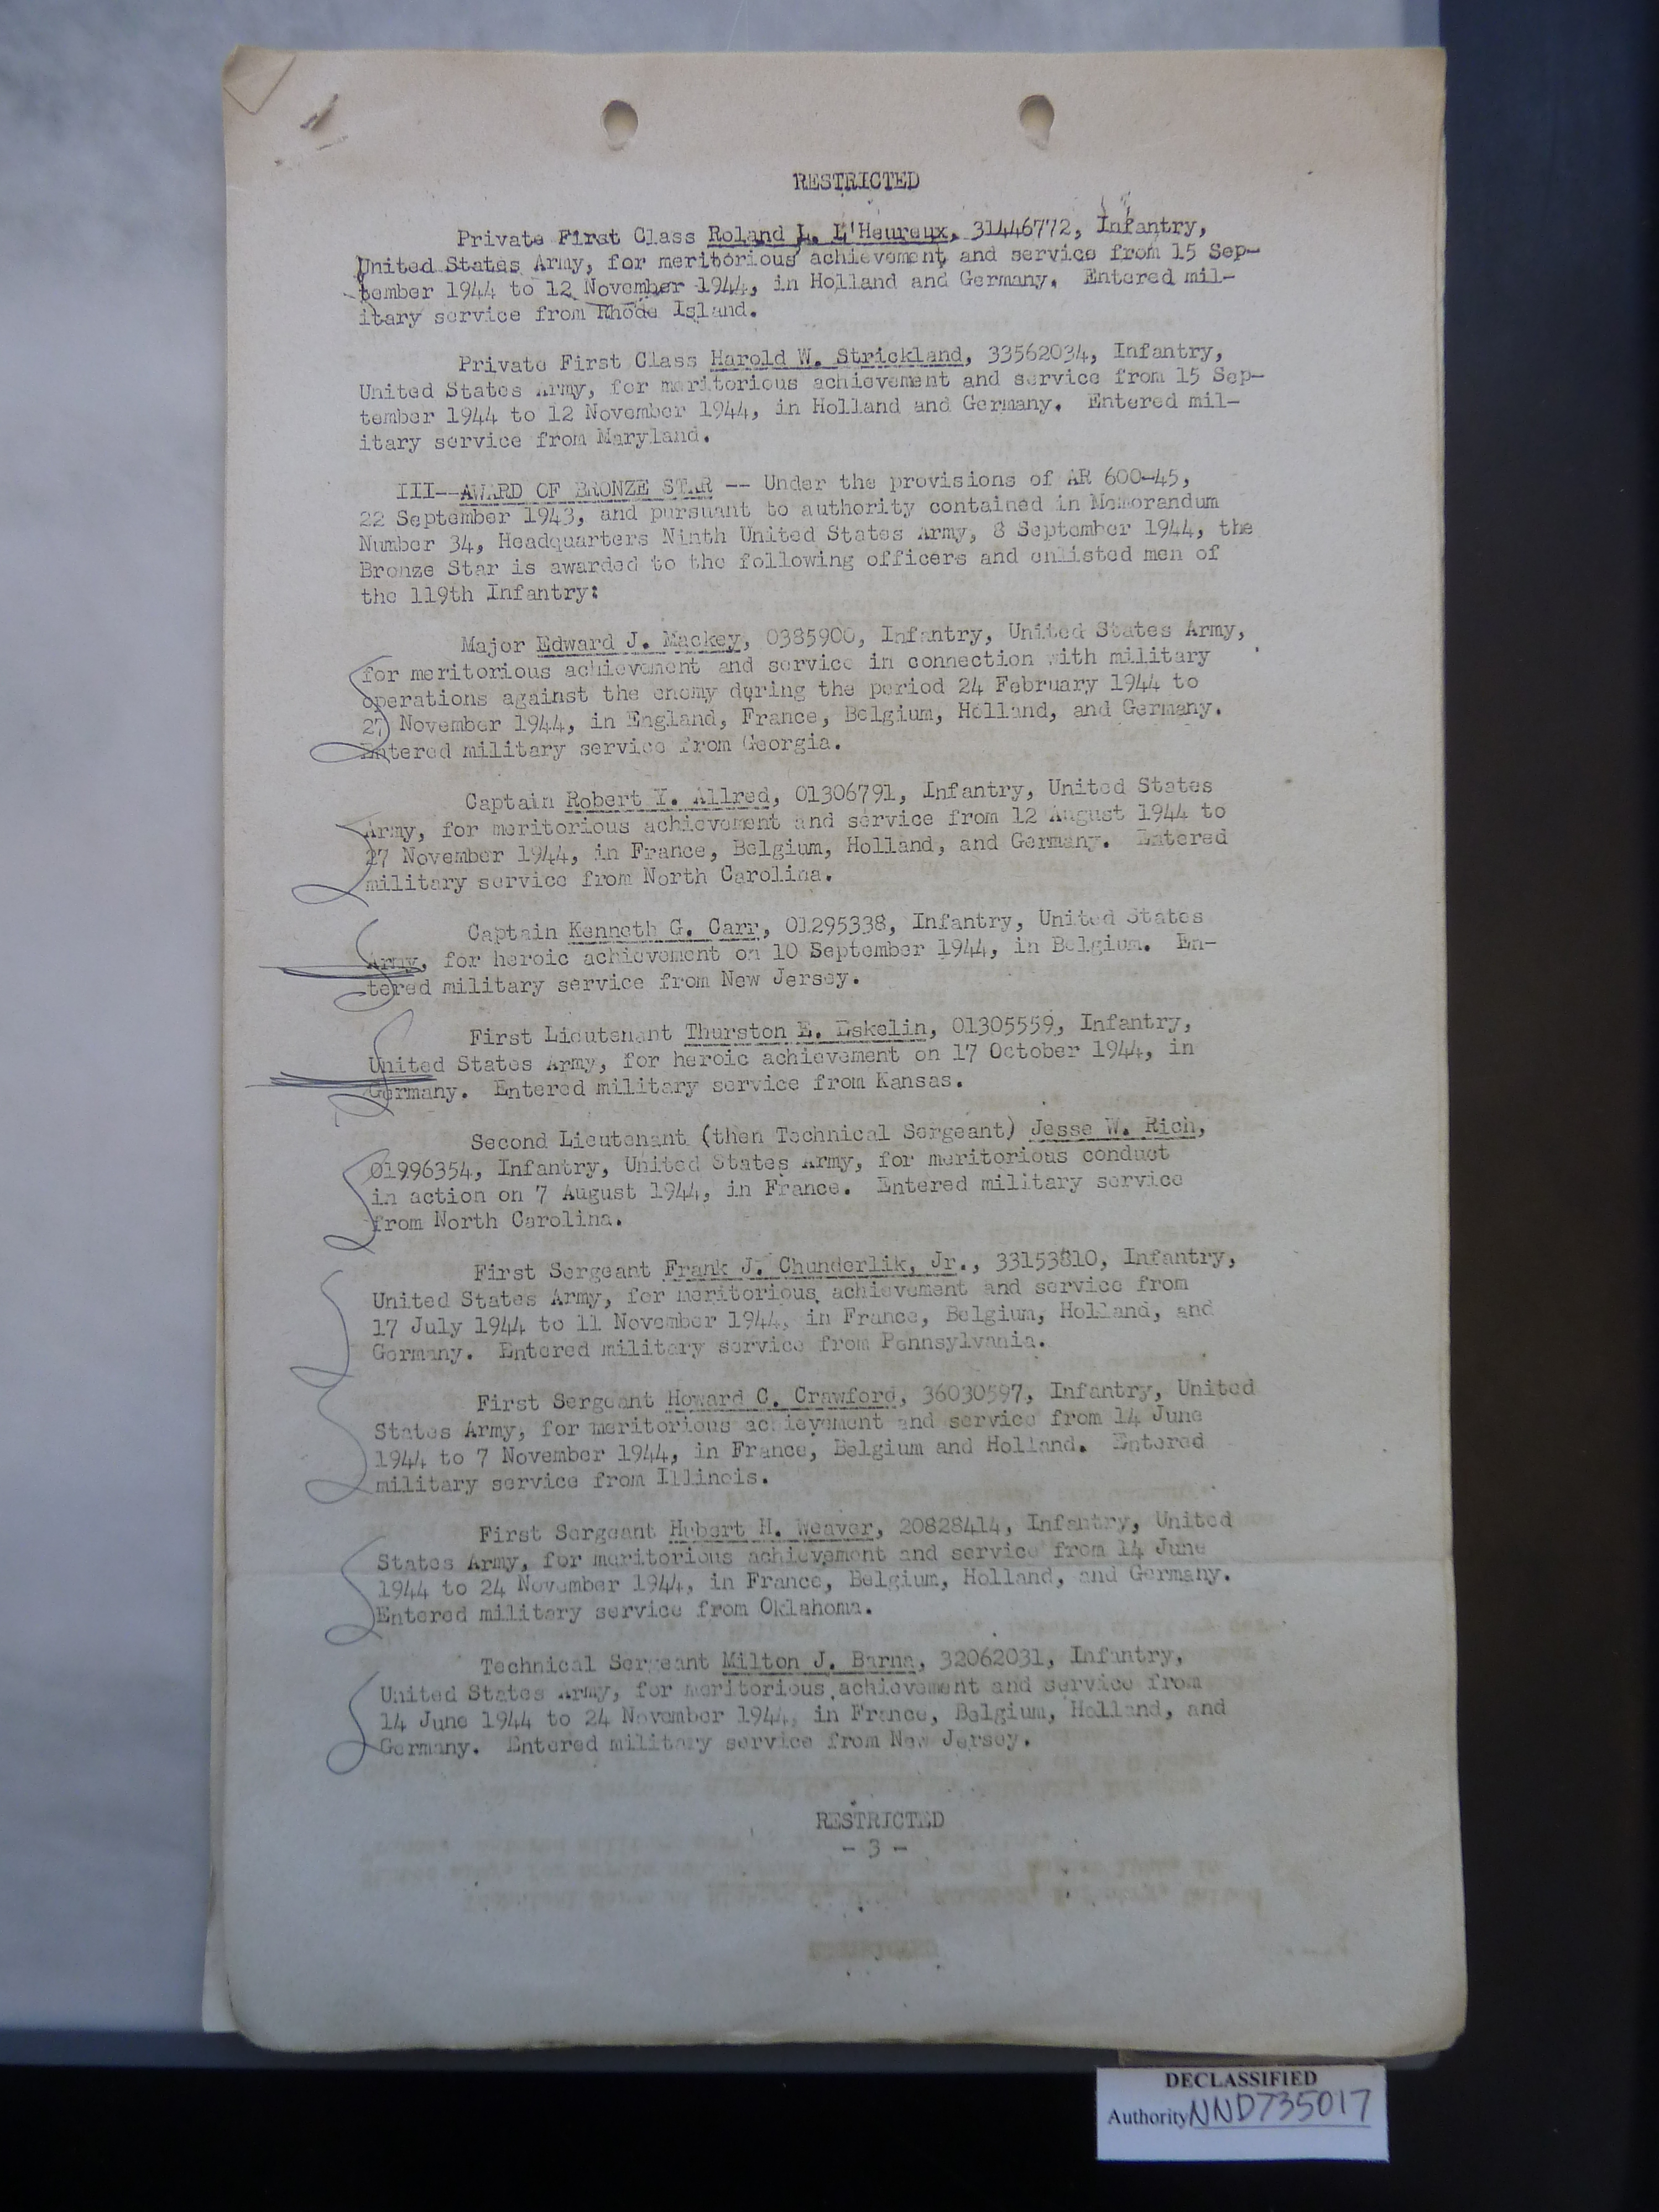 RESTRICTED
Private First Class Roland L. L'Heureux, 31446772, Infantry,
United States Army, for meritorious achievement and service from 15 Sep-
tember 1944 to 12 November 1944, in Holland and Germany. Entered mil-
itary service from Rhode Island.
Private First Class Harold W. Strickland, 33562034, Infantry,
United States Army, for meritorious achievement and service from 15 Sep-
tember 1944 to 12 November 1944, in Holland and Germany. Entered mil-
itary service from Maryland.
III--AWARD OF BRONZE STAR -- Under the provisions of AR 600-45,
22 September 1943, and pursuant to authority contained in Memorandum
Number 34, Headquarters Ninth United States Army, 8 September 1944, the
Bronze Star is awarded to the following officers and enlisted men of
the 119th Infantry:
Major Edward J. Mackey, 0385900, Infantry, United States Army,
for meritorious achievement and service in connection with military
operations against the enemy during the period 24 February 1944 to
27 November 1944, in England, France, Belgium, Holland, and Germany.
Entered military service from Georgia.
Captain Robert Y. Allred, 01306791, Infantry, United States
Army, for meritorious achievement and service from 12 August 1944 to
27 November 1944, in France, Belgium, Holland, and Germany. Entered
military service from North Carolina.
Captain Kenneth G. Carr, 01295338, Infantry, United States
Army, for heroic achievement on 10 September 1944, in Belgium. En-
tered military service from New Jersey.
First Lieutenant Thurston E. Eskelin, 01305559, Infantry,
United States Army, for heroic achievement on 17 October 1944, in
Germany. Entered military service from Kansas.
Second Lieutenant (then Technical Sergeant) Jesse W. Rich,
01996354, Infantry, United States Army, for meritorious conduct
in action on 7 August 1944, in France. Entered military service
from North Carolina.
First Sergeant Frank J. Chunderlik, Jr., 33153810, Infantry,
United States Army, for meritorious achievement and service from
17 July 1944 to 11 November 1944, in France, Belgium, Holland, and
Germany. Entered military service from Pennsylvania.
First Sergeant Howard C. Crawford, 36030597, Infantry, United
States Army, for meritorious achievement and service from 14 June
1944 to 7 November 1944, in France, Belgium and Holland. Entered
military service from Illinois.
First Sergeant Hubert H. Weaver, 20828414, Infantry, United
States Army, for meritorious achievement and service from 14 June
1944 to 24 November 1944, in France, Belgium, Holland, and Germany.
Entered military service from Oklahoma.
Technical Sergeant Milton J. Barna, 32062031, Infantry,
United States Army, for meritorious achievement and service from
14 June 1944 to 24 November 1944, in France, Belgium, Holland, and
Germany. Entered military service from New Jersey.
RESTRICTED
- 3 -
DECLASSIFIED
Authority NND735017